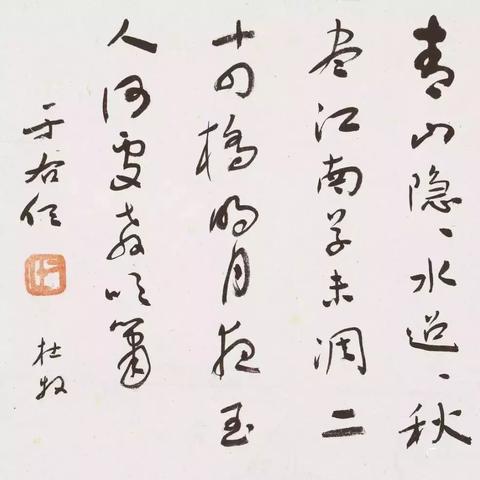 青山隐、水迢、秋
盡江南草未凋二
十四橋明月夜玉
人何處教吹簫
于右任
杜牧